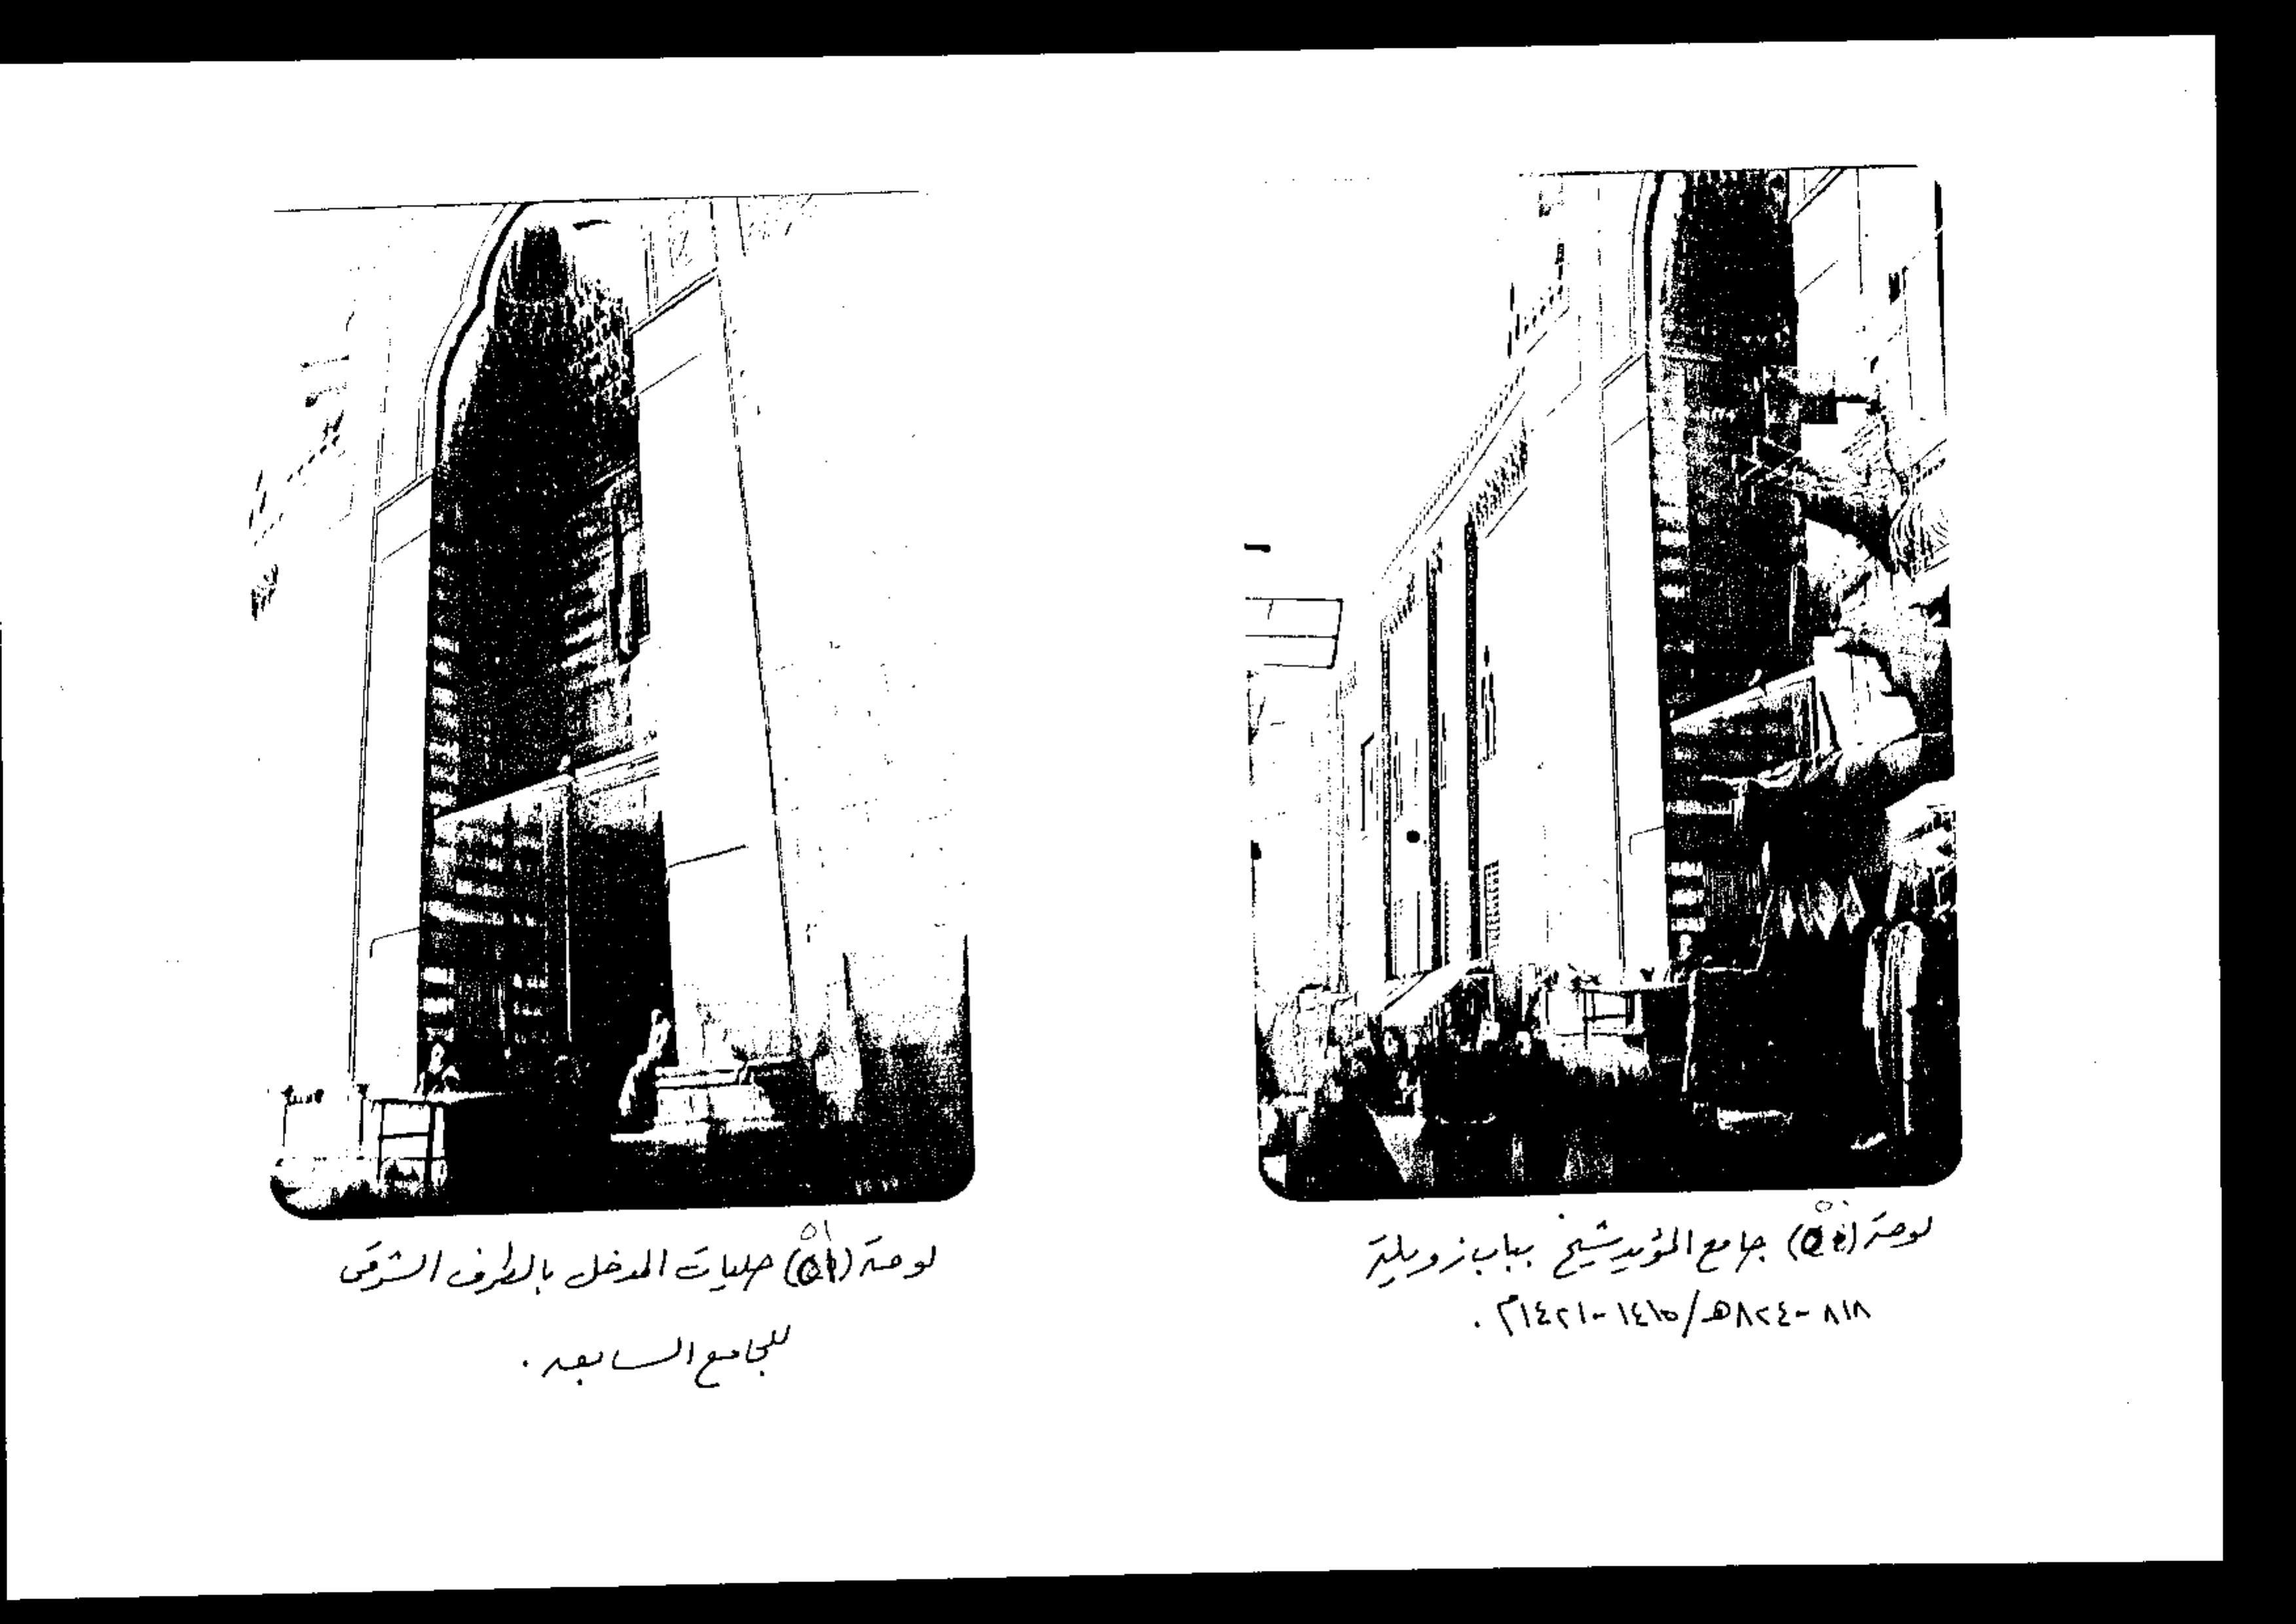 لوحة (٥٠) جامع المؤيد شيخ بباب زويلة
٨١٨-٨٢٤هـ/١٤١٥-١٤٢١م .
لوحة (٥١) حليات المدخل بالطرف الشرقى
للجامع السابق .